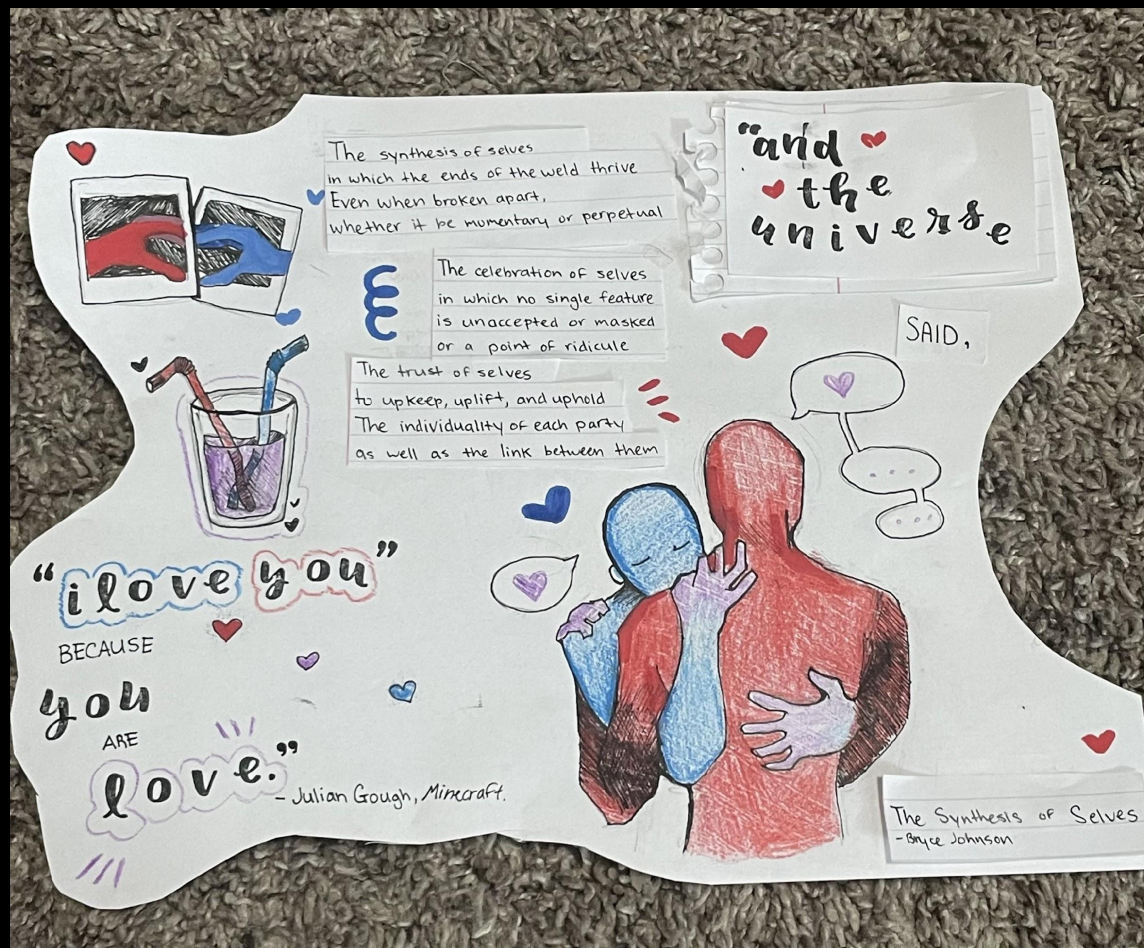 The synthesis of selves
in which the ends of the weld thrive
Even when broken apart,
whether it be momentary or perpetual
The celebration of selves
in which no single feature
is unaccepted or masked
or a point of ridicule
The trust of selves
to upkeep, uplift, and uphold
The individuality of each party
as well as the link between them
"and
the
universe
SAID,
"i love you"
BECAUSE
you
ARE
love."
- Julian Gough, Minecraft.
The Synthesis of Selves
-Bryce Johnson